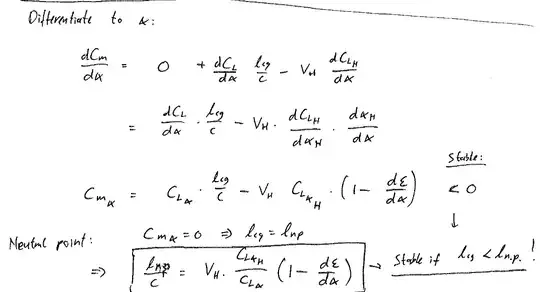 Differentiate to α:
dCm/dα = 0 + dCL/dα lcg/c - VH dCLH/dα
= dCL/dα · lcg/c - VH · dCLH/dαH · dαH/dα
Stable:
Cmα = CLα · lcg/c - VH CLαH · (1 - dε/dα) < 0
↓
Neutral point: Cmα = 0 ⇒ lcg = lnp
⇒ lnp/c = VH · CLαH/CLα (1 - dε/dα) → Stable if lcg < ln.p. !